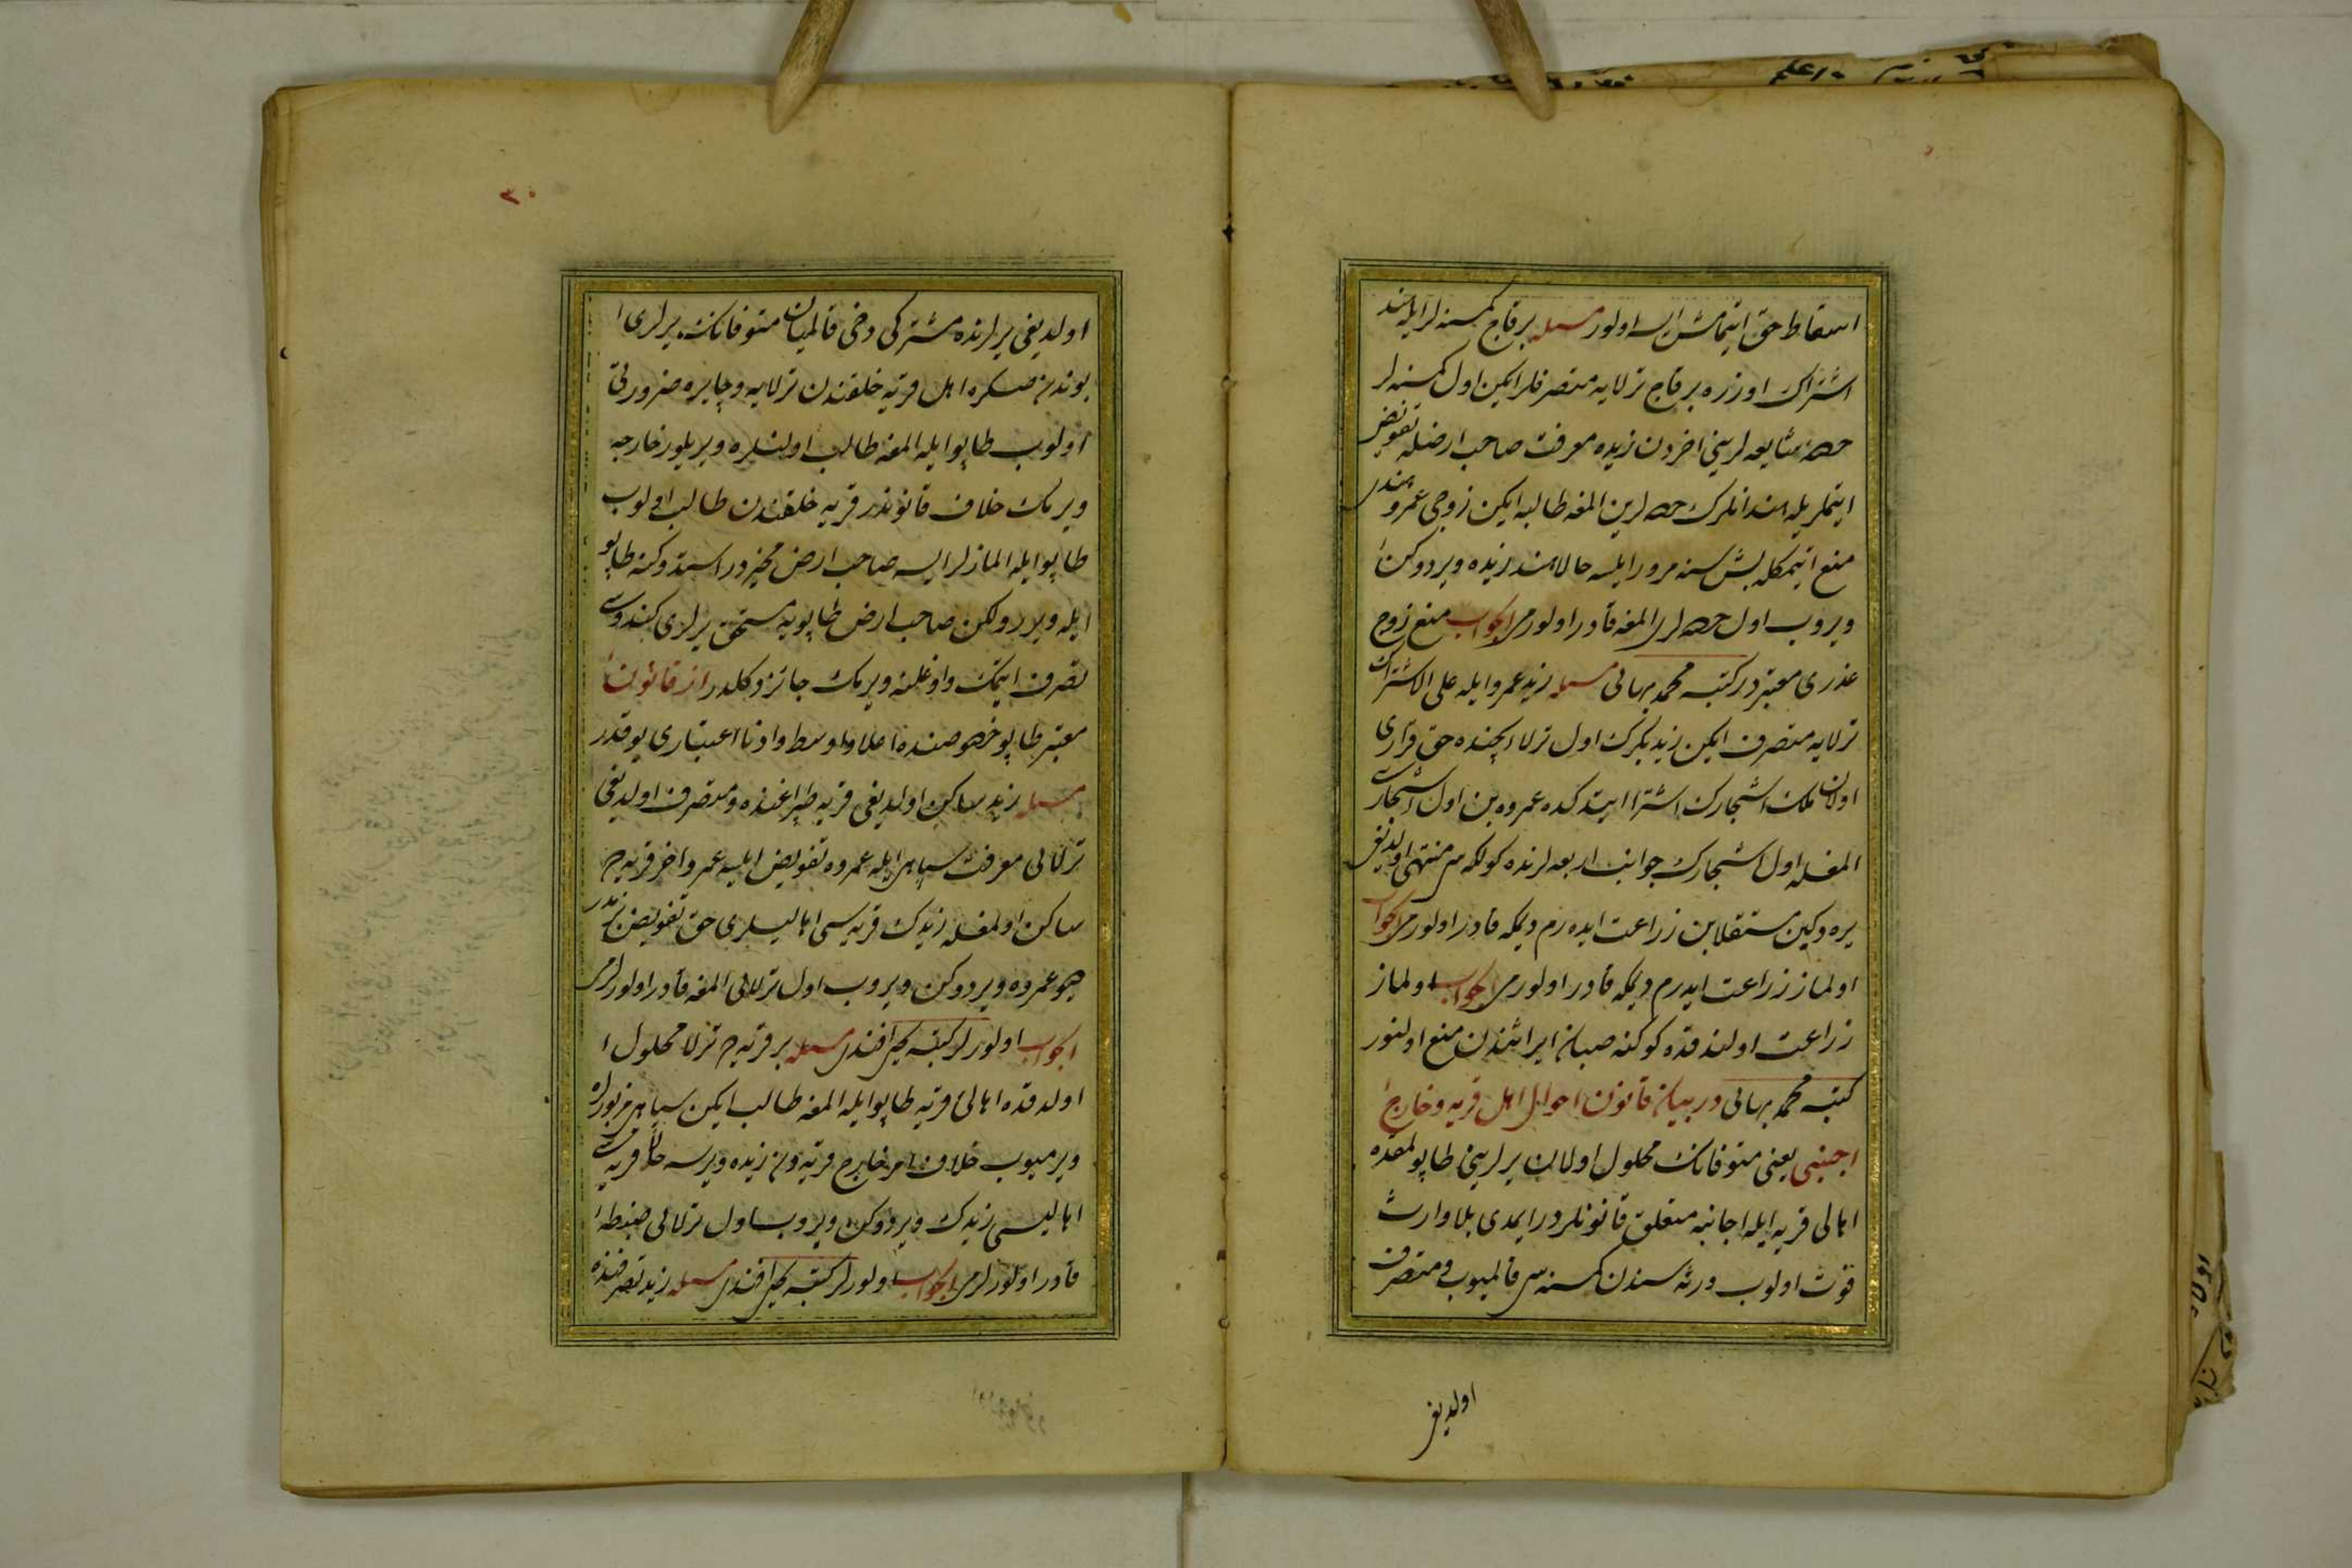 اسقاط حق ایتمامش ایسه اولور مسئله برقاچ کمسنه لر ایله هند
اشتراک اوزره برقاچ ترلایه متصرفلر ایکن اول کمسنه لر
حصهٔ شایعه لرینی اخردن زیده معرفت صاحب ارضله تفویض
ایتملریله هند انلرک حصه لرین المغه طالبه ایکن زوجی عمرو هندی
منع ایتمکله بش سنه مرور ایلسه حالا هند زیده ویردوکن
ویروب اول حصه لری المغه قادر اولورمی الجواب منع زوج
عذری معتبردر کتبه محمد بهائی مسئله زید عمرو ایله علی الاشتراک
ترلایه متصرف ایکن زید بکرک اول ترلا ایچنده حق قراری
اولان ملک اشجارک اشترا ایتدکده عمروه بن اول اشجاری
المغله اول اشجارک جوانب اربعه لرنده کولکه سی منتهی اولدیغی
یره دکین مستقلا بن زراعت ایده رم دیمکه قادر اولورمی الجواب
اولماز زراعت ایدرم دیمکه قادر اولورمی الجواب اولماز
زراعت اولندقده کوکنه صبان ایراشدن منع اولنور
کتبه محمد بهائی در بیان قانون احوال اهل قریه و خارج
اجنبی یعنی متوفانک محلول اولان یرلرینی طاپولمقده
اهالی قریه ایله اجانبه متعلق قانونلردر ایمدی بلا وارث
فوت اولوب ورثه سندن کمسنه سی قالمیوب و متصرف
اولدیغی
۲۰
اولدیغی یرلرنده مشترکی دخی قالمیان متوفانک یرلری
بوندن صکره اهل قریه خلقندن ترلایه و چایره ضرورتی
اولوب طاپو ایله المغه طالب اولنلره ویریلور خارجه
ویرمک خلاف قانوندر قریه خلقندن طالب اولوب
طاپو ایله المازلر ایسه صاحب ارض مخیردر استدوکنه طاپو
ایله ویرر ولکن صاحب ارض طاپویه مستحق یرلری کندوسی
تصرف ایتمک و اوغلنه ویرمک جائز دکلدر از قانون
معتبر طاپو خصوصنده اعلا و اوسط و ادنا اعتباری یوقدر
مسئله زید ساکن اولدیغی قریه طپراغنده و متصرف اولدیغی
ترلالی معرفت سپاهی ایله عمروه تفویض ایلسه عمرو اخر قریه ده
ساکن اولمغله زیدک قریه سی اهالیسلری حق تفویض بزمدر
دیو عمروه ویردوکن ویروب اول ترلالی المغه قادر اولورلرمی
الجواب اولورلر کتبه یحیی افندی مسئله بر قریه ده ترلا محلول
اولدقده اهالئ قریه طاپو ایله المغه طالب ایکن سپاهی مزبورلره
ویرمیوب خلاف امر خارج قریه دن زیده ویرسه حالا قریه سی
اهالیسی زیدک ویردوکن ویروب اول ترلالی ضبطه
قادر اولورلرمی الجواب اولورلر کتبه یحیی افندی مسئله زید تصرفنده